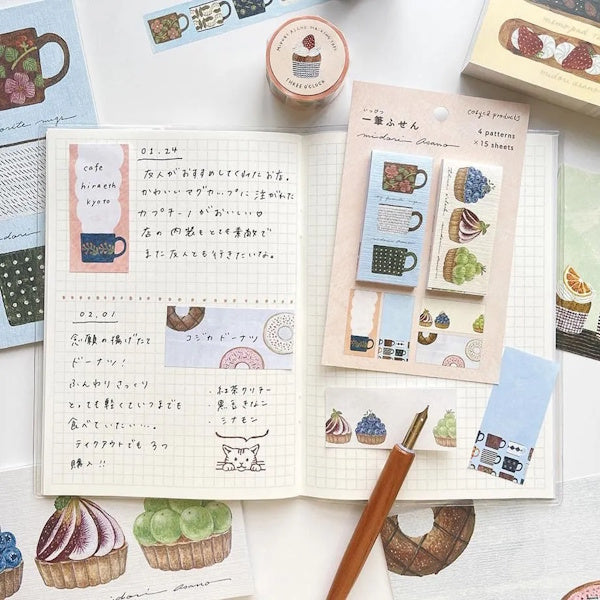 MIDORI ASANO MASKING TAPE
THREE O'CLOCK
midori asano
いっぴつ
一筆ふせん
midori asano
cozyca products
4 patterns
×15 sheets
cafe
hiraeth
kyoto
01.24
友人がおすすめしてくれたお店。
かわいいマグカップに注がれた
カプチーノがおいしい♡
店の内装もとても素敵で
また友人とも行きたいな。
02.01
念願の揚げたて
ドーナツ!
ふんわりさっくり
とっても軽くていつまでも
食べていたい...。
テイクアウトでも3つ
購入!!
コジカドーナツ
・紅茶クリーム
・黒豆きなこ
・シナモン
midori asano